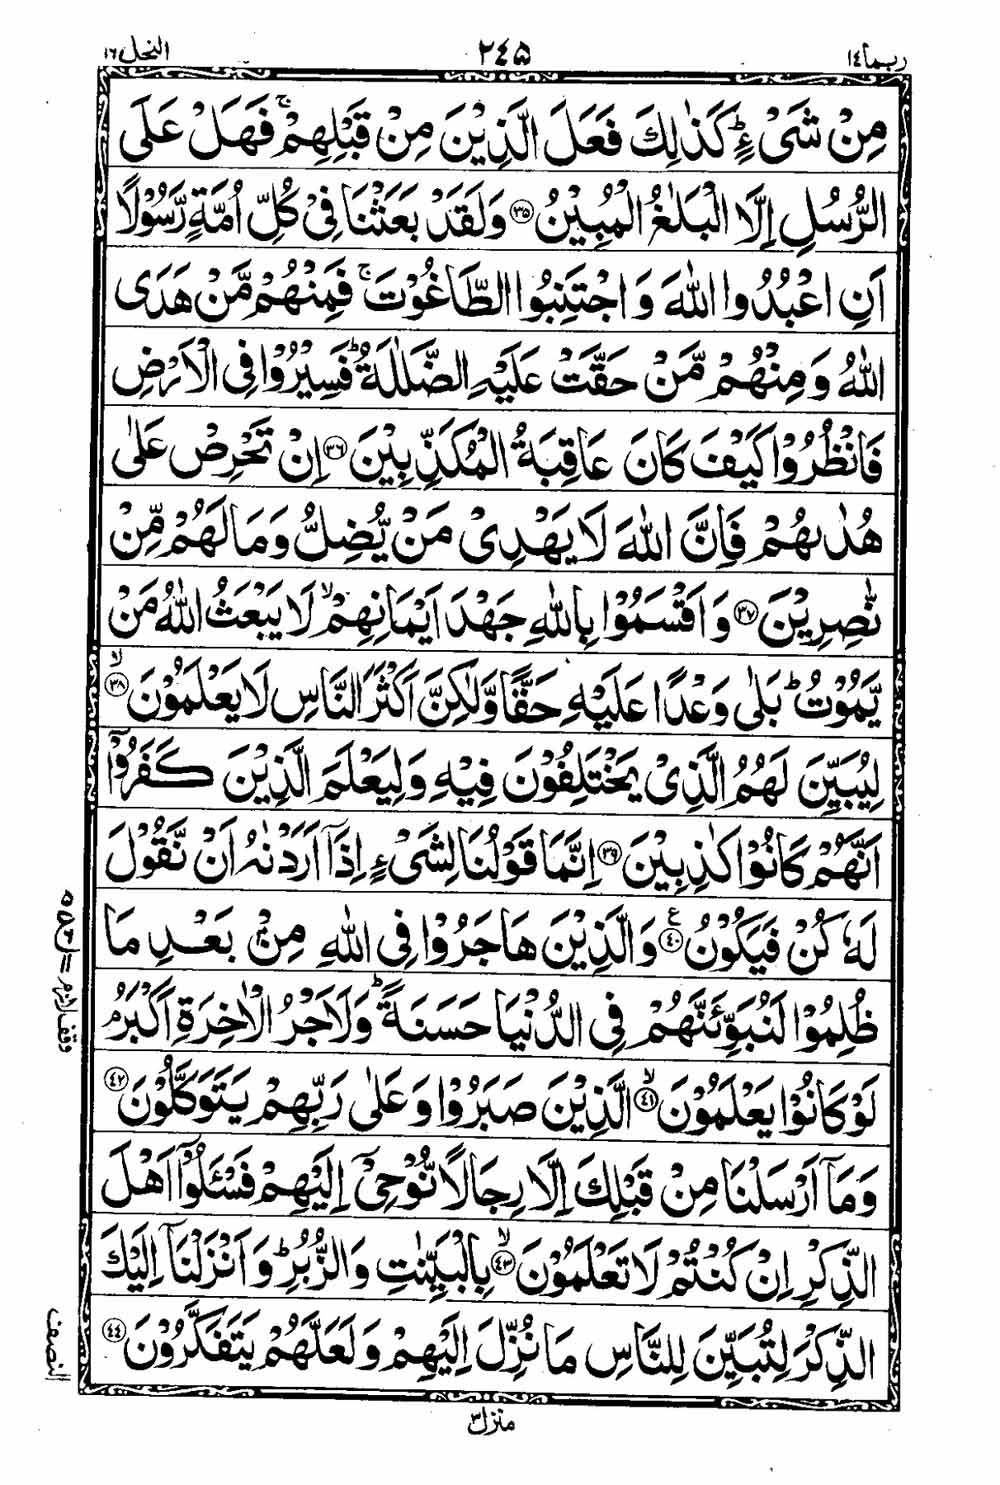 ربما ١٤ ٢٤٥ النحل ١٦
مِنۡ شَىۡءٍ‌ؕ كَذٰلِكَ فَعَلَ الَّذِيۡنَ مِنۡ قَبۡلِهِمۡ‌ۚ فَهَلۡ عَلَى
الرُّسُلِ اِلَّا الۡبَلٰغُ الۡمُبِيۡنُ ﴿۳۵﴾ وَلَـقَدۡ بَعَثۡنَا فِىۡ كُلِّ اُمَّةٍ رَّسُوۡلًا
اَنِ اعۡبُدُوا اللّٰهَ وَاجۡتَنِبُوا الطَّاغُوۡتَ‌ۚ فَمِنۡهُمۡ مَّنۡ هَدَى
اللّٰهُ وَمِنۡهُمۡ مَّنۡ حَقَّتۡ عَلَيۡهِ الضَّلٰلَةُ‌ؕ فَسِيۡرُوۡا فِى الۡاَرۡضِ
فَانْظُرُوۡا كَيۡفَ كَانَ عَاقِبَةُ الۡمُكَذِّبِيۡنَ ﴿۳۶﴾ اِنۡ تَحۡرِصۡ عَلٰى
هُدٰٮهُمۡ فَاِنَّ اللّٰهَ لَا يَهۡدِىۡ مَنۡ يُّضِلُّ وَمَا لَهُمۡ مِّنۡ
نّٰصِرِيۡنَ ﴿۳۷﴾ وَ اَقۡسَمُوۡا بِاللّٰهِ جَهۡدَ اَيۡمَانِهِمۡۙ لَا يَبۡعَثُ اللّٰهُ مَنۡ
يَّمُوۡتُ‌ؕ بَلٰى وَعۡدًا عَلَيۡهِ حَقًّا وَّلٰـكِنَّ اَكۡثَرَ النَّاسِ لَا يَعۡلَمُوۡنَۙ ﴿۳۸﴾
لِيُبَيِّنَ لَهُمُ الَّذِىۡ يَخۡتَلِفُوۡنَ فِيۡهِ وَلِيَـعۡلَمَ الَّذِيۡنَ كَفَرُوۡۤا
اَنَّهُمۡ كَانُوۡا كٰذِبِيۡنَ ﴿۳۹﴾ اِنَّمَا قَوۡلُـنَا لِشَىۡءٍ اِذَاۤ اَرَدۡنٰهُ اَنۡ نَّقُوۡلَ
لَهٗ كُنۡ فَيَكُوۡنُ ﴿۴۰﴾ ع وَالَّذِيۡنَ هَاجَرُوۡا فِى اللّٰهِ مِنۡۢ بَعۡدِ مَا
ظُلِمُوۡا لَـنُبَوِّئَنَّهُمۡ فِى الدُّنۡيَا حَسَنَةً‌ؕ وَلَاَجۡرُ الۡاٰخِرَةِ اَكۡبَرُ‌ۘ
لَوۡ كَانُوۡا يَعۡلَمُوۡنَۙ ﴿۴۱﴾ الَّذِيۡنَ صَبَرُوۡا وَعَلٰى رَبِّهِمۡ يَتَوَكَّلُوۡنَ ﴿۴۲﴾
وَمَاۤ اَرۡسَلۡنَا مِنۡ قَبۡلِكَ اِلَّا رِجَالًا نُّوۡحِىۡۤ اِلَيۡهِمۡ‌ فَسۡـئَلُوۡۤا اَهۡلَ
الذِّكۡرِ اِنۡ كُنۡتُمۡ لَا تَعۡلَمُوۡنَۙ ﴿۴۳﴾ بِالۡبَيِّنٰتِ وَالزُّبُرِ‌ؕ وَاَنۡزَلۡنَاۤ اِلَيۡكَ
الذِّكۡرَ لِتُبَيِّنَ لِلنَّاسِ مَا نُزِّلَ اِلَيۡهِمۡ وَلَعَلَّهُمۡ يَتَفَكَّرُوۡنَ ﴿۴۴﴾
وقف لازم
النصف
منزل ٣